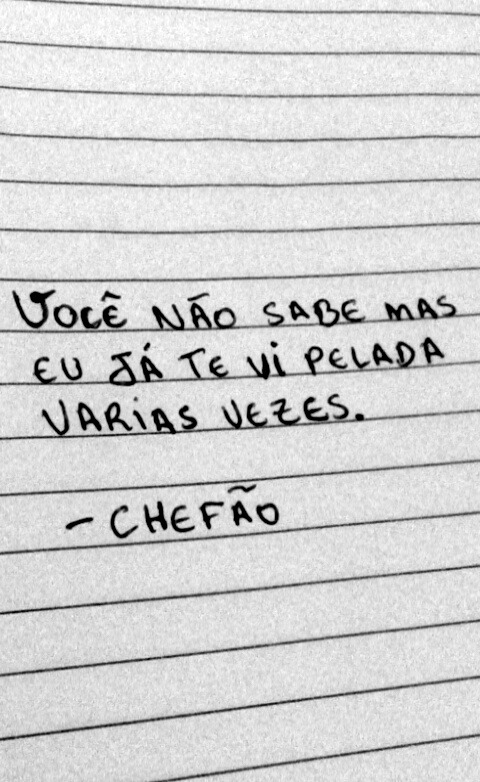 VOCÊ NÃO SABE MAS
EU JÁ TE Vi PELADA
VARiAS VEZES.
- CHEFÃO